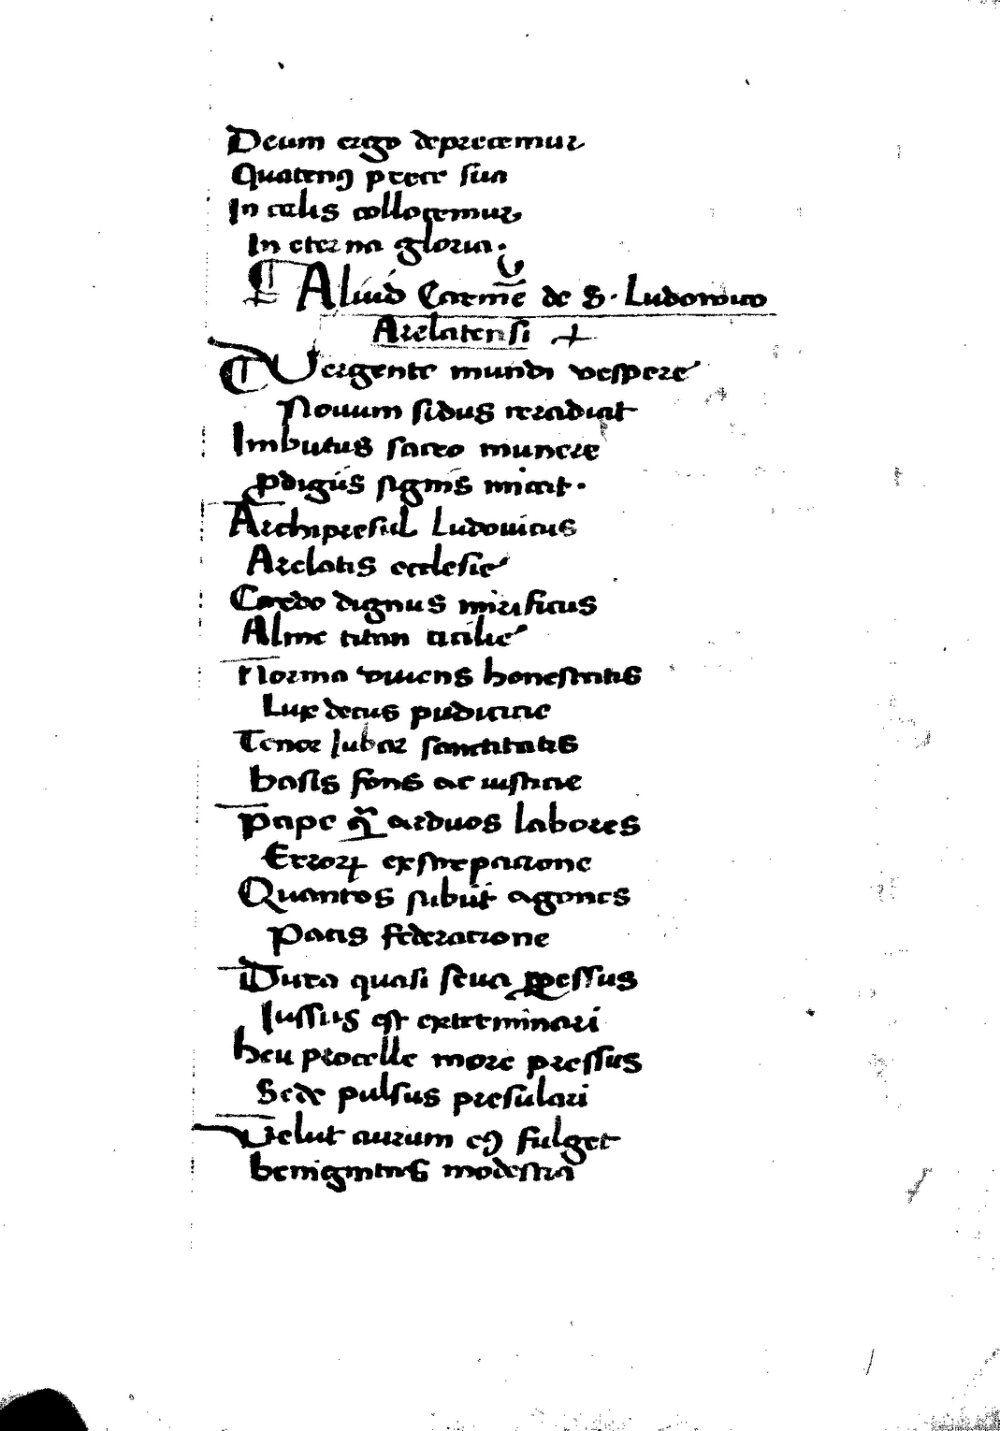 Deum ergo deprecemur
Quatenꝯ prece sua
In celis collocemur
In eterna gloria.
Aliud Carmē de S. Ludowico
Arelatensi +
Uergente mundi vespere
Nouum sidus reradiat
Imbutus sacro munere
ꝓdigiis signis micat.
Archipresul Ludouicus
Arelatis ecclesie
Cardo dignus mirificus
Alme titan cicilie
Norma viuens honestatis
Lux decus pudicicie
Tenor Jubar sanctitatis
basis fons ac iusticie
Pape arduos labores
Erroꝝ exstirpacione
Quantos subiit agones
Pacis federacione
Dura quasi seua ꝑpessus
Iussus est exterminari
heu procelle more pressus
Sede pulsus presulari
Velut aurum eꝯ fulget
benignitas modestia